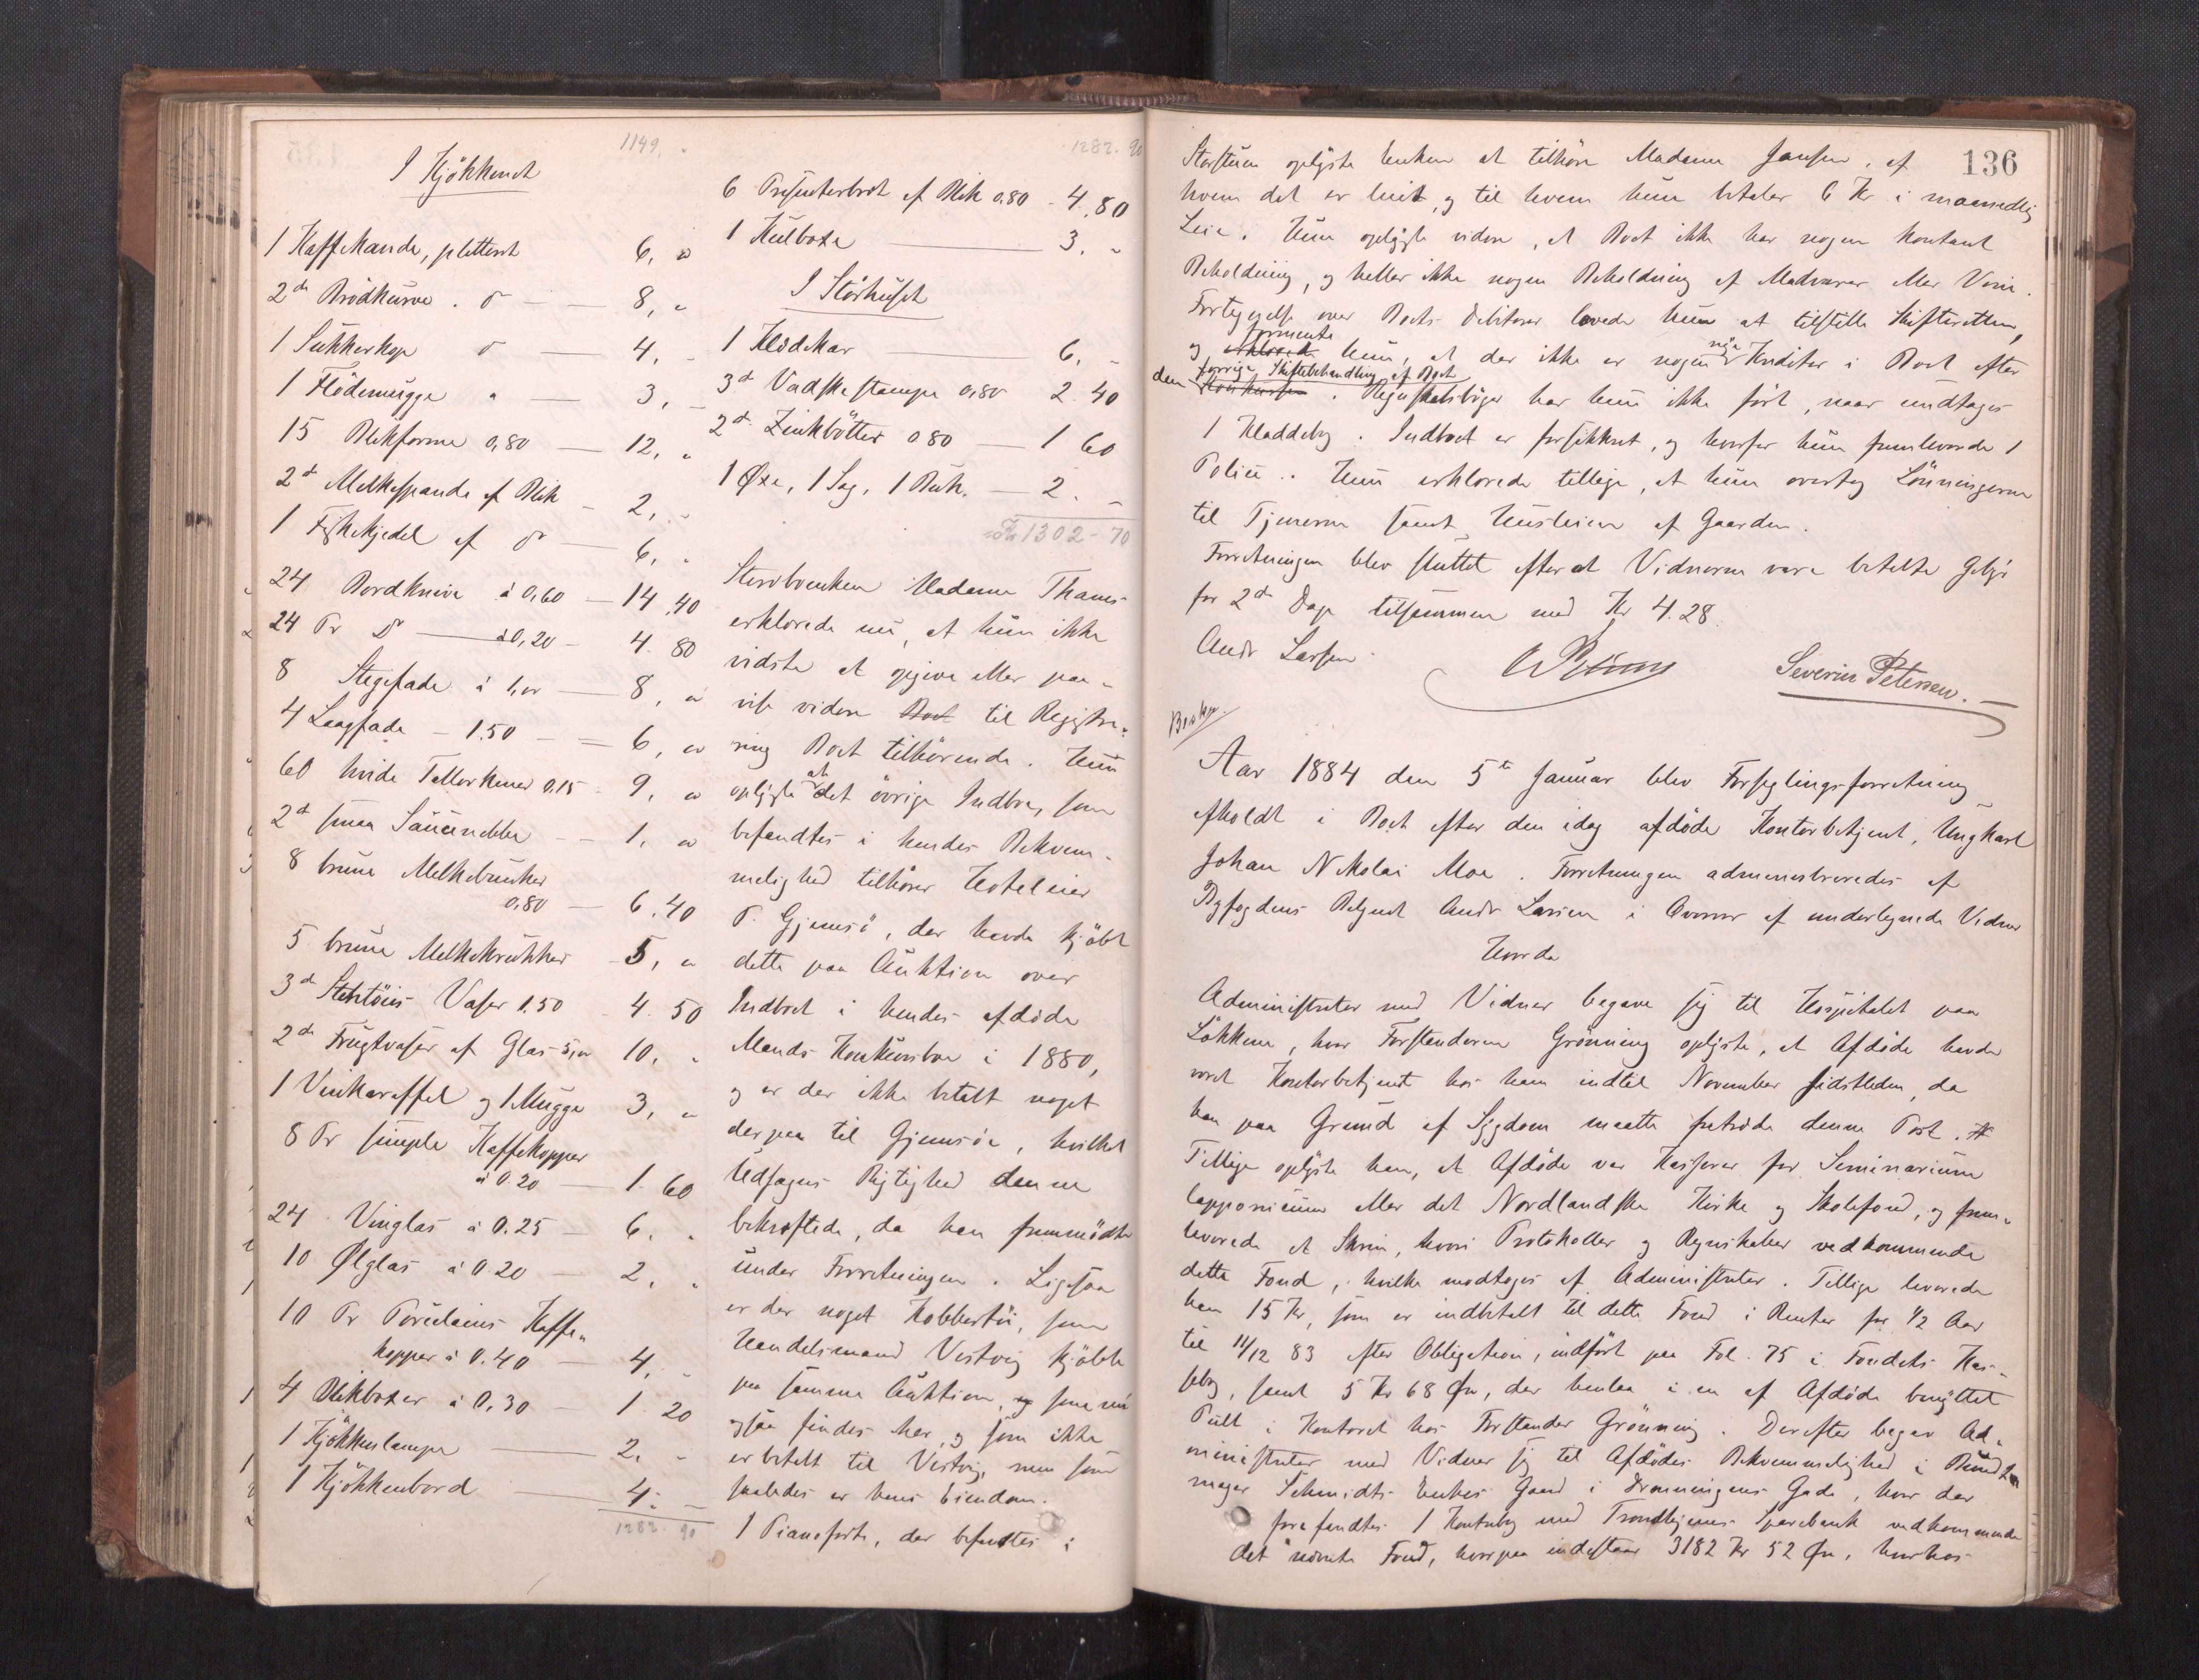 1149. "
I Kjøkkenet
1 Kaffekande, pletteret 6, "
2de Brødkurve. do — 8, "
1 Sukkerkop do — 4, "
1 Flødemugge " — 3, "
15 Blikforme 0,80 — 12, "
2de Melkespande af Blik — 2, "
1 Fiskekjedel af do — 6, "
24 Bordknive à 0,60 — 14,40
24 Pr Do — à 0,20 — 4.80
8 Stegefade à 1,00 — 8, "
4 Laagfade — 1.50 — 6, "
60 hvide Tallerkener 0.15 - 9, "
2de smaa Saucenebber — 1, "
8 brune Melkebunker
0,80 — 6.40
5 brune Melkekrukker — 5, "
3de Stentöies Vaser 1.50 - 4.50
2de Frugtvaser af Glas 5,00 10, "
1 Vinkaraffel og 1 Mugge 3, "
8 Pr simple Kaffekopper
à 0.20 — 1.60
24 Vinglas à 0.25 — 6. "
10 Ølglas à 0.20 — 2, "
10 Pr Porcelains Kaffe-
kopper à 0.40 — 4, "
4 Blikboxer à 0,30 — 1.20
1 Kjøkkenlampe — 2, "
1 Kjøkkenbord — 4. "
1282. 90
1282. 90
6 Præsenterbret af Blik 0.80 - 4.80
1 Kulboxe — 3. "
I Störhuset
1 Klædekar — 6, "
3de Vadskestampe 0,80 2.40
2de Zinkbøtter 0.80 — 1 60
1 Øxe, 1 Sag, 1 Buk. — 2. "
Kr 1302-70
Stervboenken Madame Thams
erklærede nu, at hun ikke
vidste at opgive eller paa-
vise videre Boet til Registre-
ring Boet tilhørende. Hun
oplyste at det övrige Indbo, som
befandtes i hendes Bekvem-
melighed tilhører Hoteleier
P. Gjemsö, der havde kjöbt
dette paa Auktion over
Indboet i hendes afdøde
Mands Konkursbo i 1880,
og er der ikke betalt noget
derpaa til Gjemsöe, hvilket
Udsagns Rigtighed denne
bekræftede, da han fremmødte
under Forretningen. Ligesaa
er der noget Kobbertöi, som
Handelsmand Vestvig kjöbte
paa samme Auktion, og som nu
ogsaa findes her, og som ikke
er betalt til Vestvig, men som
saaledes er hans Eiendom.
1 Pianoforte, der befandtes i
136
Storstuen oplyste Enken at tilhøre Madame Jansen, af
hvem det er leiet, og til hvem hun betaler 6 Kr i maanedlig
Leie. Hun oplyste videre, at Boet ikke har nogen kontant
Beholdning, og heller ikke nogen Beholdning af Madvarer eller Vine.
Fortegnelse over Boets Debitorer lovede hun at tilstille Skifteretten,
formente
og erklærede hun, at der ikke er nogen nye Kreditor i Boet efter
forrige Skiftebehandling af Boet
den Konkursen. Regnskabsbøger har hun ikke ført, naar undtages
1 Kladdebog. Indboet er forsikkret, og hvorfor hun fremleverede 1
Police. Hun erklærede tillige, at hun overtog Lønningerne
til Tjenerne samt Husleien af Gaarden.
Forretningen blev sluttet efterat Vidnerne vare betalte Gebyr
for 2de Dage tilsammen med Kr 4.28.
Andr Larsen
Severin Petersen.
Beskr.
Aar 1884 den 5te Januar blev Forseglingsforretning
afholdt i Boet efter den idag afdøde Kontorbetjent, Ungkarl
Johan Nikolai Moe. Forretningen administreredes af
Byfogdens Betjent Andr Larsen i Overvær af undertegnede Vidner
Hvorda
Administrator med Vidner begave sig til Hospitalet paa
Løkken, hvor Forstanderen Grönning oplyste, at Afdøde havde
været Kontorbetjent hos ham indtil November sidstleden, da
han paa Grund af Sygdom maatte fratræde denne Post.
Tillige oplyste han, at Afdøde var Kasserer for Seminarium
lapponicum eller det Nordlandske Kirke og Skolefond, og frem-
leverede et Skrin, hvori Protokoller og Regnskaber vedkommende
dette Fond, hvilke modtoges af Administrator. Tillige leverede
han 15 Kr, som er indbetalt til dette Fond i Renter for 1/2 Aar
til 11/12 83 efter Obligation, indført paa Fol. 75 i Fondets Kas-
sebog, samt 5 Kr 68 Øre, der henlaa i en af Afdøde benyttet
Pult i Kontoret hos Forstander Grönning. Derefter begav Ad-
ministrator med Vidner sig til Afdødes Bekvemmelighed i Bundt-
mager Schmidts Enkes Gaard i Dronningens Gade, hvor der
forefandtes 1 Kontrabog med Trondhjems Sparebank vedkommende
det nævnte Fond, hvorpaa indestaar 3182 Kr 52 Øre, hvorhos